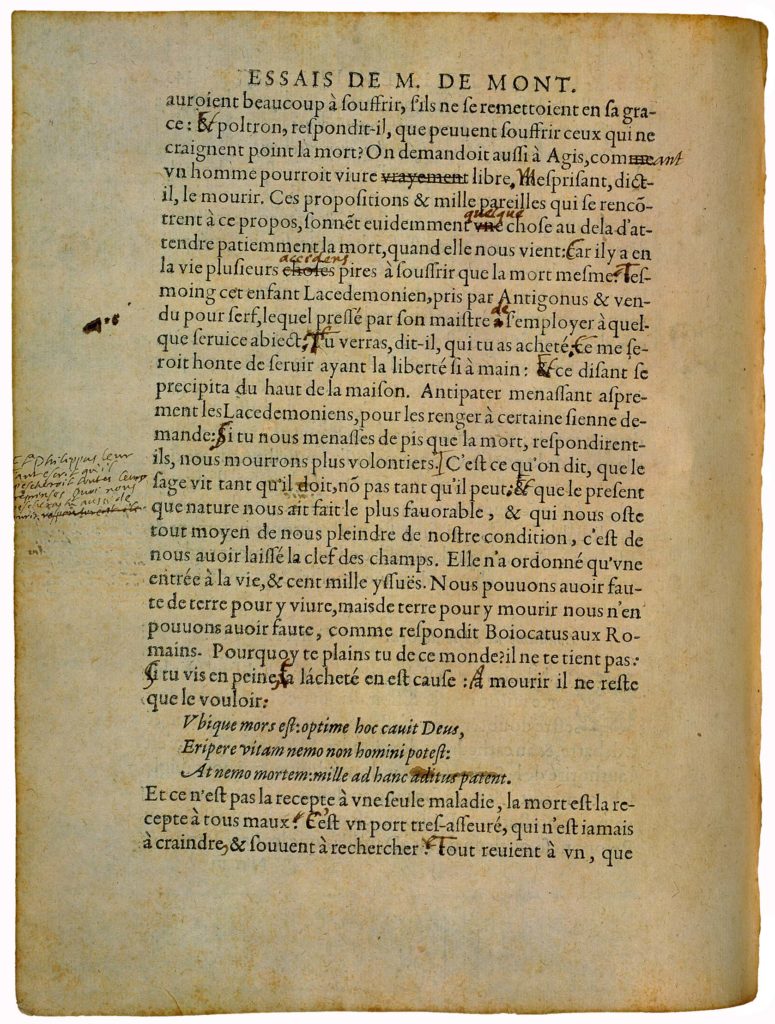 ESSAIS DE M. DE MONT.
auroient beaucoup à souffrir, s'ils ne se remettoient en sa gra-
ce: Et poltron, respondit-il, que peuuent souffrir ceux qui ne
craignent point la mort? On demandoit aussi à Agis, comment
vn homme pourroit viure vrayement libre, Mesprisant, dict-
il, le mourir. Ces propositions & mille pareilles qui se rencõ-
quelque
trent à ce propos, sonnẽt euidemment vne chose au dela d'at-
tendre patiemment la mort, quand elle nous vient: Car il y a en
accidens
la vie plusieurs choses pires à souffrir que la mort mesme: Tes-
moing cet enfant Lacedemonien, pris par Antigonus & ven-
de
du pour serf, lequel pressé par son maistre s'employer à quel-
que seruice abiect; Tu verras, dit-il, qui tu as acheté, Ce me se-
roit honte de seruir ayant la liberté si à main: Et ce disant se
precipita du haut de la maison. Antipater menassant aspre-
ment les Lacedemoniens, pour les renger à certaine sienne de-
mande: Si tu nous menasses de pis que la mort, respondirent-
ils, nous mourrons plus volontiers. C'est ce qu'on dit, que le
sage vit tant qu'il doit, nõ pas tant qu'il peut; Et que le present
que nature nous ait fait le plus fauorable, & qui nous oste
tout moyen de nous pleindre de nostre condition, c'est de
nous auoir laissé la clef des champs. Elle n'a ordonné qu'vne
entrée à la vie, & cent mille yssuës. Nous pouuons auoir fau-
te de terre pour y viure, mais de terre pour y mourir nous n'en
pouuons auoir faute, comme respondit Boiocatus aux Ro-
mains. Pourquoy te plains tu de ce monde? il ne te tient pas:
Si tu vis en peine, ta lácheté en est cause: A mourir il ne reste
que le vouloir:
Vbique mors est: optime hoc cauit Deus,
Eripere vitam nemo non homini potest:
At nemo mortem: mille ad hanc aditus patent.
Et ce n'est pas la recepte à vne seule maladie, la mort est la re-
cepte à tous maux: C'est vn port tres-asseuré, qui n'est iamais
à craindre, & souuent à rechercher: Tout reuient à vn, que
Et Philippus leur